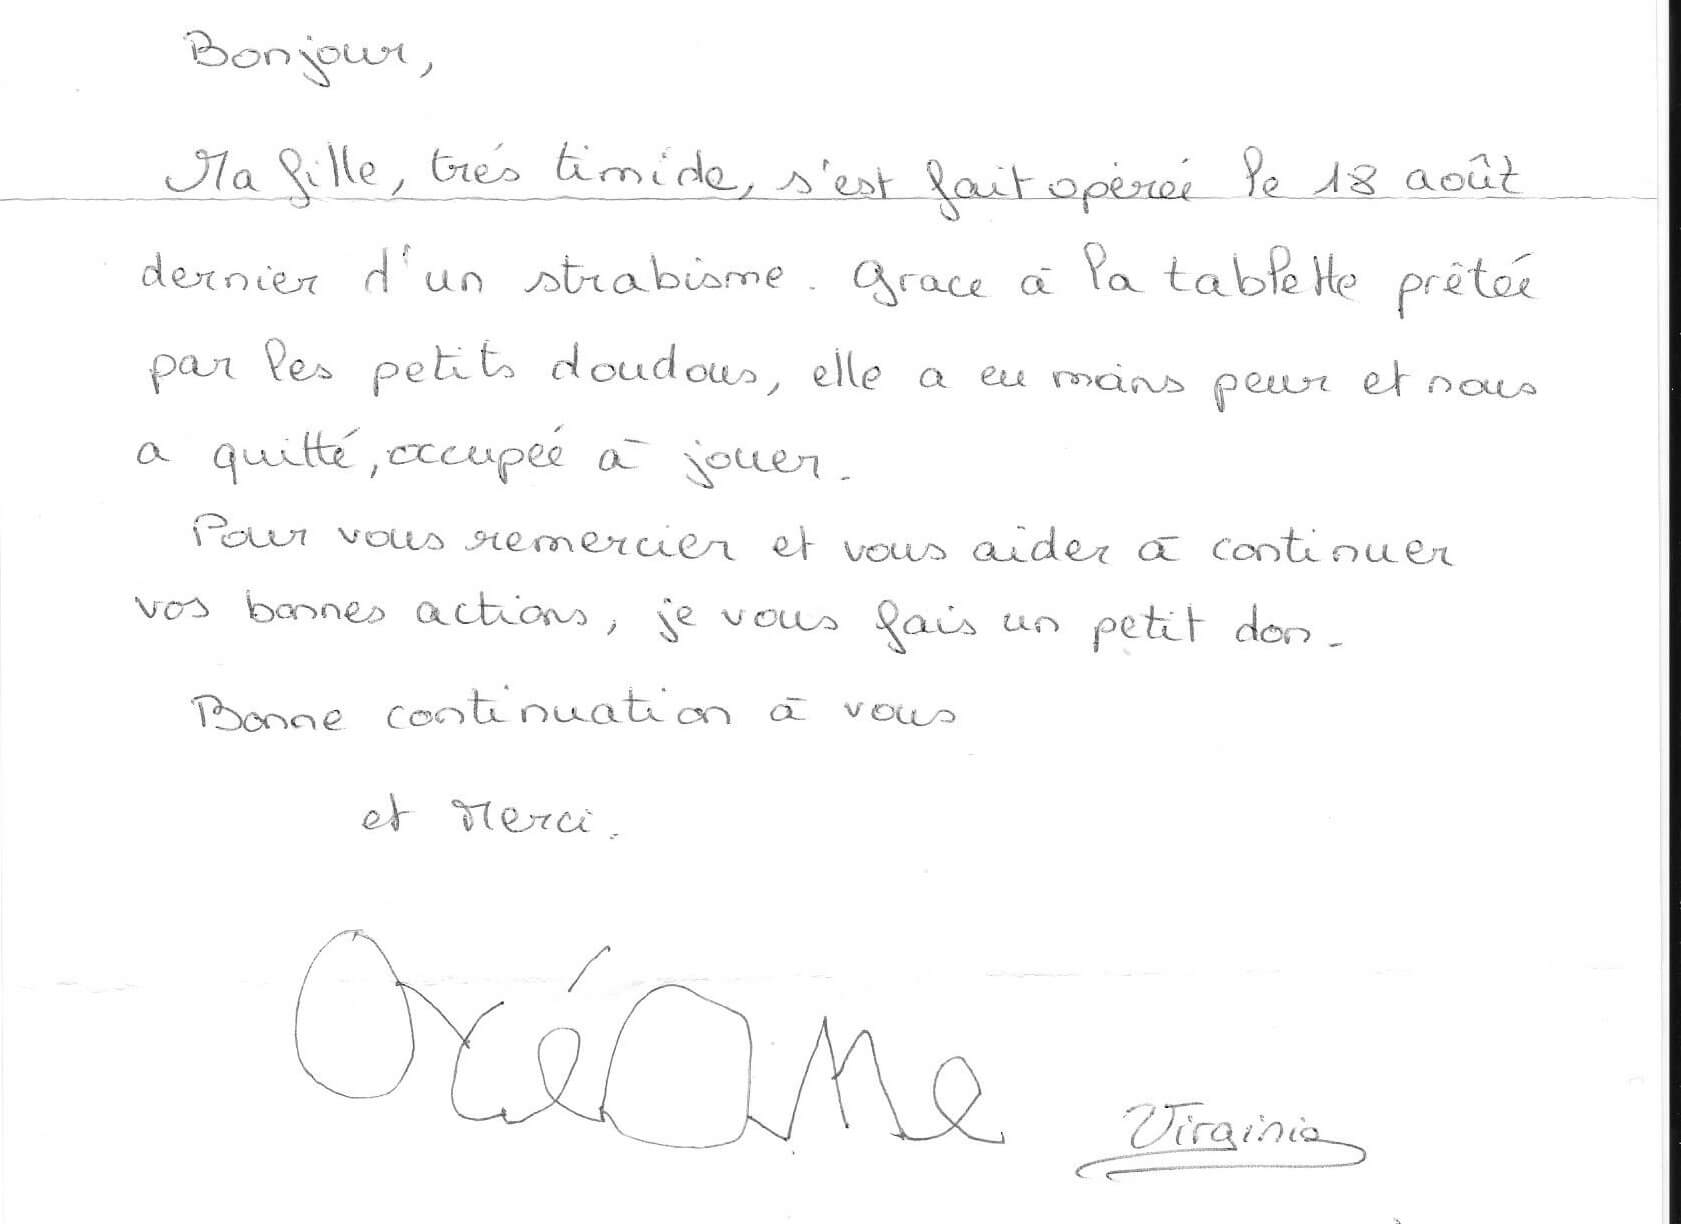 Bonjour,
Ma fille, trés timide, s'est fait opéreé le 18 août
dernier d'un strabisme. Grace à la tablette prêteé
par les petits doudous, elle a eu moins peur et nous
a quitté, occupeé à jouer.
Pour vous remercier et vous aider à continuer
vos bonnes actions, je vous fais un petit don.
Bonne continuation à vous
et Merci.
Océane
Virginie